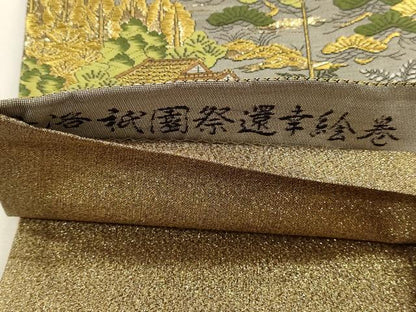 洛祇園祭還幸絵巻